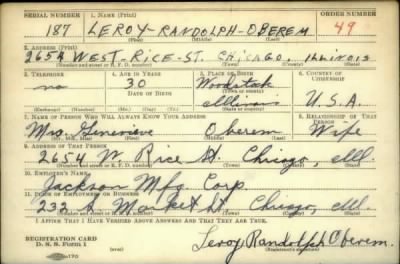 SERIAL NUMBER 1. NAME (Print) ORDER NUMBER
187 LEROY-RANDOLPH-OBEREM 49
(First) (Middle) (Last)
2. ADDRESS (Print)
2654 WEST-RICE-ST. CHICAGO, ILLINOIS
(Number and street or R. F. D. number) (Town) (County) (State)
3. TELEPHONE 4. AGE IN YEARS 5. PLACE OF BIRTH 6. COUNTRY OF CITIZENSHIP
no 30 Woodstock
DATE OF BIRTH (Town or county)
Illinois U.S.A.
(Exchange) (Number) (Mo.) (Day) (Yr.) (State or country)
7. NAME OF PERSON WHO WILL ALWAYS KNOW YOUR ADDRESS 8. RELATIONSHIP OF THAT PERSON
Mrs. Genevieve Oberem Wife
(Mr., Mrs., Miss) (First) (Middle) (Last)
9. ADDRESS OF THAT PERSON
2654 W. Rice St. Chicago, Ill.
(Number and street or R. F. D. number) (Town) (County) (State)
10. EMPLOYER'S NAME
Jackson Mfg. Corp.
11. PLACE OF EMPLOYMENT OR BUSINESS
232 S. Market St. Chicago, Ill.
(Number and street or R. F. D. number) (Town) (County) (State)
I AFFIRM THAT I HAVE VERIFIED ABOVE ANSWERS AND THAT THEY ARE TRUE.
REGISTRATION CARD
D. S. S. Form 1 (over) Leroy Randolph Oberem.
(Registrant's signature)